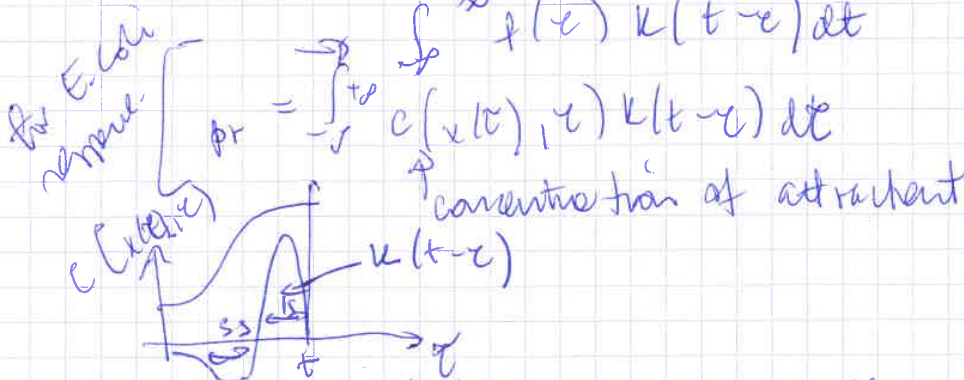 ∫ f(τ) K(t-τ) dt
for E. Coli
response.
pr = ∫_{-∞}^{+∞} C(x(τ), τ) K(t-τ) dτ
concentration of attractant
C(x(τ), τ)
K(t-τ)
1s
3s
t
τ